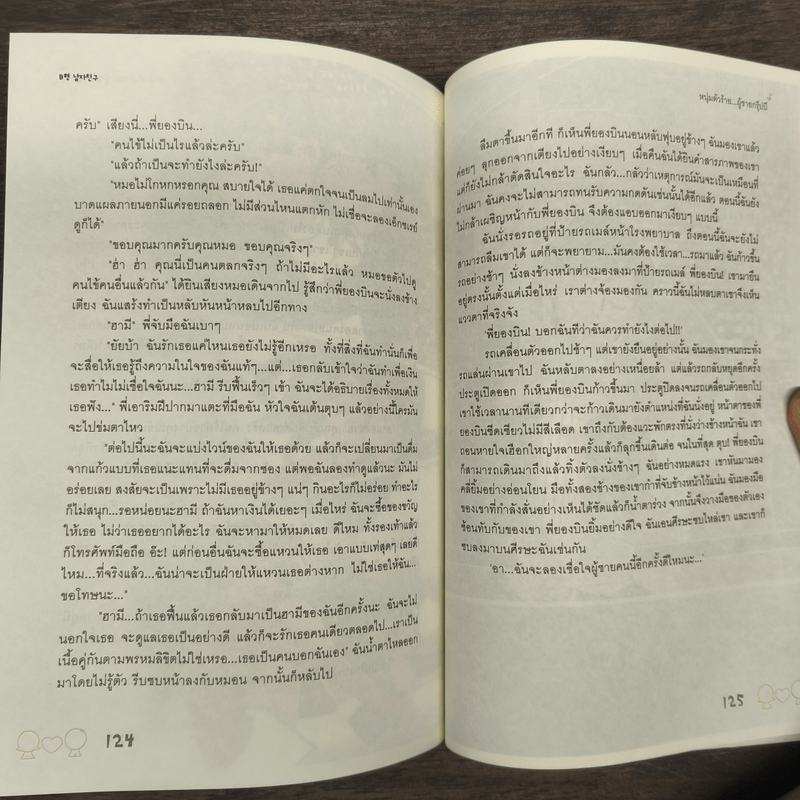 B형 남자친구
ครับ" เสียงนี่...พี่ยองบิน...
"คนไข้ไม่เป็นไรแล้วล่ะครับ"
"แล้วถ้าเป็นจะทำยังไงล่ะครับ!"
"หมอไม่โกหกหรอกคุณ สบายใจได้ เธอแค่ตกใจจนเป็นลมไปเท่านั้นเอง
บาดแผลภายนอกมีแค่รอยถลอก ไม่มีส่วนไหนแตกหัก ไม่เชื่อจะลองเอ็กซเรย์
ดูก็ได้"
"ขอบคุณมากครับคุณหมอ ขอบคุณจริงๆ"
"ฮ่า ฮ่า คุณนี่เป็นคนตลกจริงๆ ถ้าไม่มีอะไรแล้ว หมอขอตัวไปดู
คนไข้คนอื่นแล้วกัน" ได้ยินเสียงหมอเดินจากไป รู้สึกว่าพี่ยองบินจะนั่งลงข้าง
เตียง ฉันแสร้งทำเป็นหลับหันหน้าหลบไปอีกทาง
"ฮามี" พี่จับมือฉันเบาๆ
"ยัยบ้า ฉันรักเธอแค่ไหนเธอยังไม่รู้อีกเหรอ ทั้งที่สิ่งที่ฉันทำนั่นก็เพื่อ
จะสื่อให้เธอรู้ถึงความในใจของฉันแท้ๆ...แต่...เธอกลับเข้าใจว่าฉันทำเพื่อเงิน
เธอทำไมไม่เชื่อใจฉันนะ...ฮามี รีบฟื้นเร็วๆ เข้า ฉันจะได้อธิบายเรื่องทั้งหมดให้
เธอฟัง..." พี่เอาริมฝีปากมาแตะที่มือฉัน หัวใจฉันเต้นตุบๆ แล้วอย่างนี้ใครมัน
จะไปข่มตาไหว
"ต่อไปนี้นะฉันจะแบ่งไวน์ของฉันให้เธอด้วย แล้วก็จะเปลี่ยนมาเป็นดื่ม
จากแก้วแบบที่เธอแนะแทนที่จะดื่มจากซอง แต่พอฉันลองทำดูแล้วนะ มันไม่
อร่อยเลย สงสัยจะเป็นเพราะไม่มีเธออยู่ข้างๆ แน่ๆ กินอะไรก็ไม่อร่อย ทำอะไร
ก็ไม่สนุก...รอหน่อยนะฮามี ถ้าฉันหาเงินได้เยอะๆ เมื่อไหร่ ฉันจะซื้อของขวัญ
ให้เธอ ไม่ว่าเธออยากได้อะไร ฉันจะหามาให้หมดเลย ดีไหม ทั้งรองเท้าแล้ว
ก็โทรศัพท์มือถือ อ๊ะ! แต่ก่อนอื่นฉันจะซื้อแหวนให้เธอ เอาแบบเท่สุดๆ เลยดี
ไหม...ที่จริงแล้ว...ฉันน่าจะเป็นฝ่ายให้แหวนเธอต่างหาก ไม่ใช่เธอให้ฉัน...
ขอโทษนะ..."
"ฮามี...ถ้าเธอฟื้นแล้วเธอกลับมาเป็นฮามีของฉันอีกครั้งนะ ฉันจะไม่
นอกใจเธอ จะดูแลเธอเป็นอย่างดี แล้วก็จะรักเธอคนเดียวตลอดไป...เราเป็น
เนื้อคู่กันตามพรหมลิขิตไม่ใช่เหรอ...เธอเป็นคนบอกฉันเอง" ฉันน้ำตาไหลออก
มาโดยไม่รู้ตัว รีบซบหน้าลงกับหมอน จากนั้นก็หลับไป
124
หนุ่มตัวร้าย...ผู้ชายกรุ๊ปบี
ลืมตาขึ้นมาอีกที ก็เห็นพี่ยองบินนอนหลับฟุบอยู่ข้างๆ ฉันมองเขาแล้ว
ค่อยๆ ลุกออกจากเตียงไปอย่างเงียบๆ เมื่อคืนฉันได้ยินคำสารภาพของเขา
แต่ก็ยังไม่กล้าตัดสินใจอะไร ฉันกลัว...กลัวว่าเหตุการณ์มันจะเป็นเหมือนที่
ผ่านมา ฉันคงจะไม่สามารถทนรับความกดดันเช่นนั้นได้อีกแล้ว ตอนนี้ฉันยัง
ไม่กล้าเผชิญหน้ากับพี่ยองบิน จึงต้องแอบออกมาเงียบๆ แบบนี้
ฉันนั่งรอรถอยู่ที่ป้ายรถเมล์หน้าโรงพยาบาล ถึงตอนนี้ฉันจะยังไม่
สามารถลืมเขาได้ แต่ก็จะพยายาม...มันคงต้องใช้เวลา...รถมาแล้ว ฉันก้าวขึ้น
รถอย่างช้าๆ นั่งลงข้างหน้าต่างมองลงมาที่ป้ายรถเมล์ พี่ยองบิน! เขามายืน
อยู่ตรงนั้นตั้งแต่เมื่อไหร่ เราต่างจ้องมองกัน คราวนี้ฉันไม่หลบตาเขาจึงเห็น
แววตาที่จริงจัง
'พี่ยองบิน! บอกฉันทีว่าฉันควรทำยังไงต่อไป!!'
รถเคลื่อนตัวออกไปช้าๆ แต่เขายังยืนอยู่อย่างนั้น ฉันมองเขาจนกระทั่ง
รถแล่นผ่านเขาไป ฉันหลับตาลงอย่างเหนื่อยล้า แต่แล้วรถกลับหยุดอีกครั้ง
ประตูเปิดออก ก็เห็นพี่ยองบินก้าวขึ้นมา ประตูปิดลงจนรถเคลื่อนตัวออกไป
เขาใช้เวลานานทีเดียวกว่าจะก้าวเดินมายังตำแหน่งที่ฉันนั่งอยู่ หน้าตาของพี่
ยองบินซีดเซียวไม่มีสีเลือด เขาถึงกับต้องแวะพักตรงที่นั่งว่างข้างหน้าฉัน เขา
ถอนหายใจเฮือกใหญ่หลายครั้งแล้วก็ลุกขึ้นเดินต่อ จนในที่สุด ตุบ! พี่ยองบิน
ก็สามารถเดินมาถึงแล้วทิ้งตัวลงนั่งข้างๆ ฉันอย่างหมดแรง เขาหันมามอง
คลี่ยิ้มอย่างอ่อนโยน มือทั้งสองข้างของเขากำที่จับข้างหน้าไว้แน่น ฉันมองมือ
ของเขาที่กำลังสั่นอย่างเห็นได้ชัดแล้วก็น้ำตาร่วง จากนั้นจึงวางมือของตัวเอง
ซ้อนทับกับของเขา พี่ยองบินยิ้มอย่างดีใจ ฉันเอนศีรษะซบไหล่เขา และเขาก็
ซบลงมาบนศีรษะฉันเช่นกัน
'อา...ฉันจะลองเชื่อใจผู้ชายคนนี้อีกครั้งดีไหมนะ...'
125